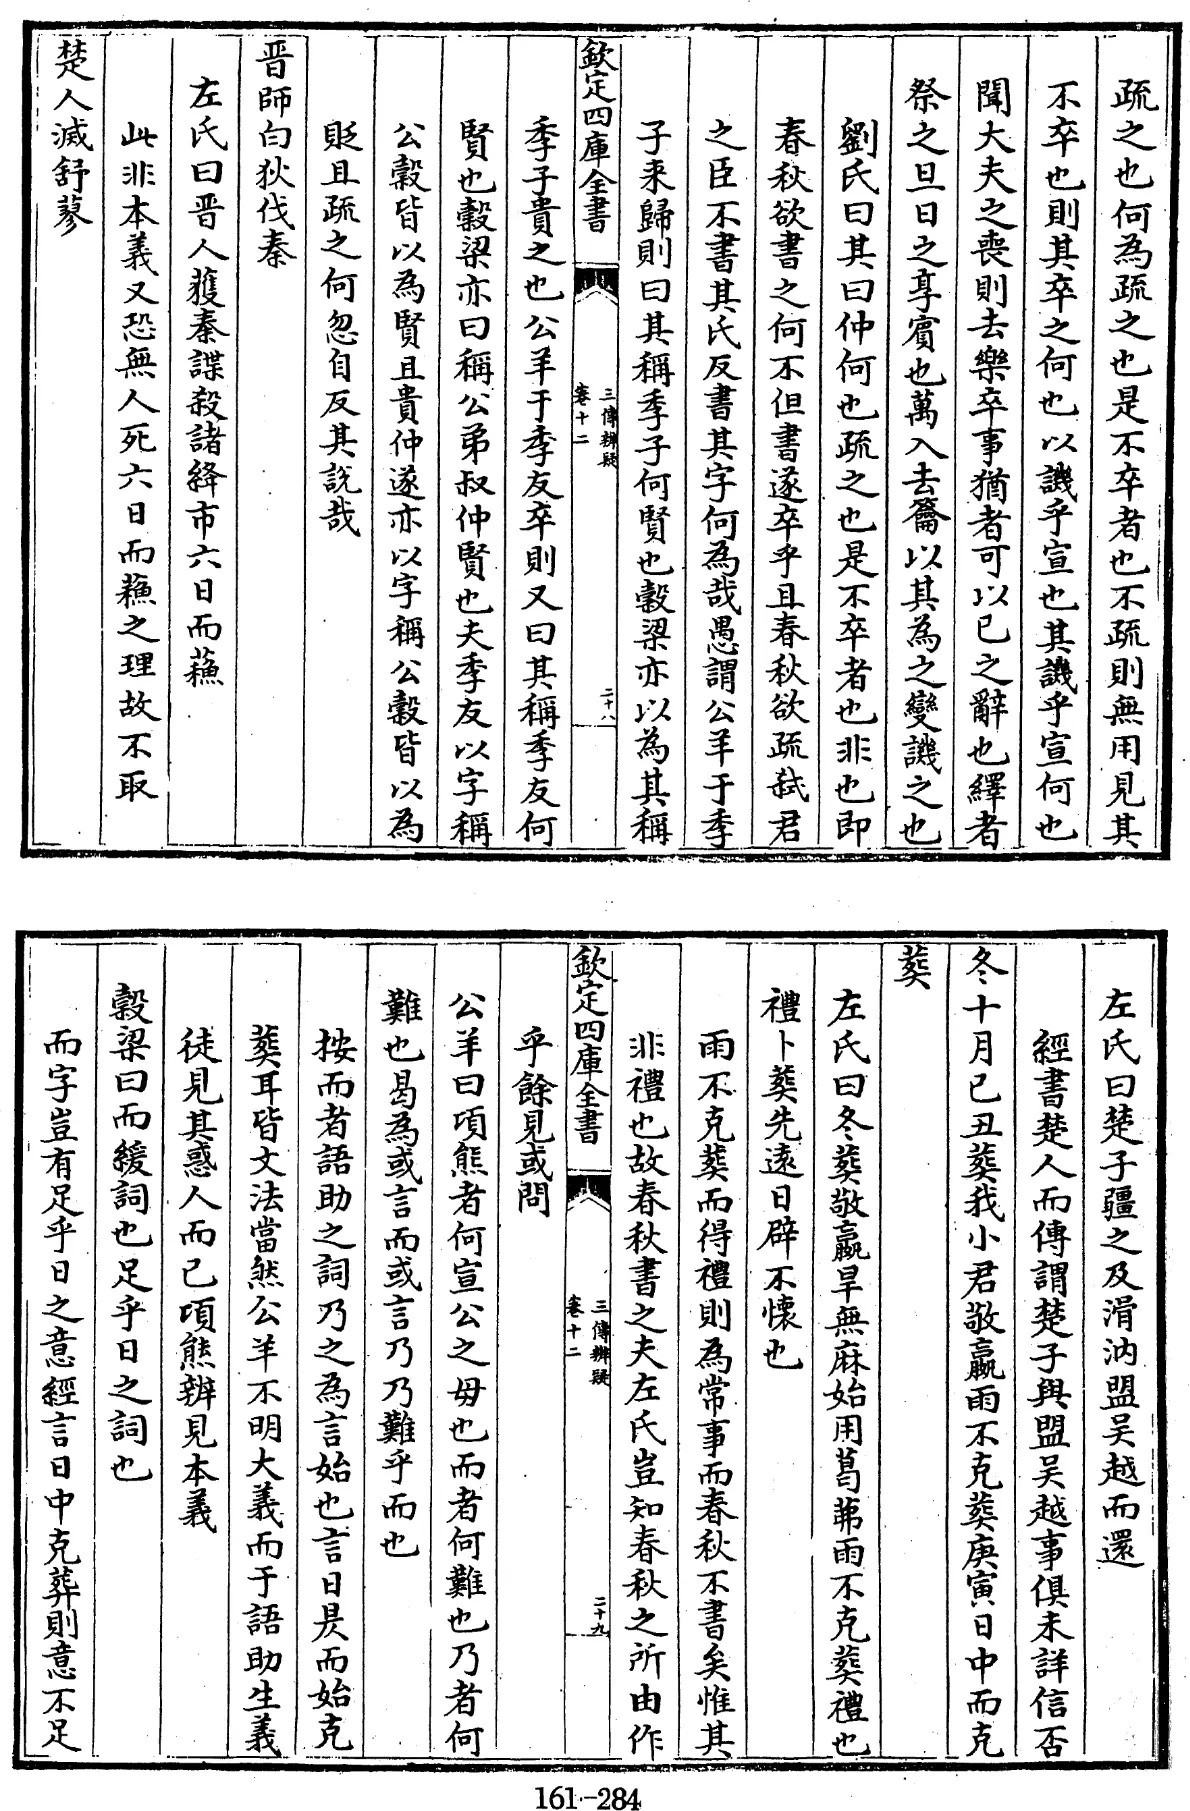 疏之也何為疏之也是不卒者也不疏則無用見其
不卒也則其卒之何也以譏乎宣也其譏乎宣何也
聞大夫之喪則去樂卒事猶者可以已之辭也繹者
祭之旦日之享賓也萬入去籥以其為之變譏之也
劉氏曰其曰仲何也疏之也是不卒者也非也即
春秋欲書之何不但書遂卒乎且春秋欲疏弑君
之臣不書其氏反書其字何為哉愚謂公羊于季
子来歸則曰其稱季子何賢也穀梁亦以為其稱
欽定四庫全書
三傳辨疑
卷十二
二十八
季子貴之也公羊于季友卒則又曰其稱季友何
賢也穀梁亦曰稱公弟叔仲賢也夫季友以字稱
公穀皆以為賢且貴仲遂亦以字稱公穀皆以為
貶且疏之何忽自反其説哉
晋師白狄伐秦
左氏曰晋人獲秦諜殺諸絳市六日而蘓
此非本義又恐無人死六日而蘓之理故不取
楚人滅舒蓼
左氏曰楚子疆之及滑汭盟吴越而還
經書楚人而傳謂楚子與盟吴越事俱未詳信否
冬十月己丑葬我小君敬嬴雨不克葬庚寅日中而克
葬
左氏曰冬葬敬嬴旱無麻始用葛茀雨不克葬禮也
禮卜葬先遠日辟不懷也
雨不克葬而得禮則為常事而春秋不書矣惟其
非禮也故春秋書之夫左氏豈知春秋之所由作
欽定四庫全書
三傳辨疑
卷十二
二十九
乎餘見或問
公羊曰頃熊者何宣公之母也而者何難也乃者何
難也曷為或言而或言乃乃難乎而也
按而者語助之詞乃之為言始也言日昃而始克
葬耳皆文法當然公羊不明大義而于語助生義
徒見其惑人而已頃熊辨見本義
穀梁曰而緩詞也足乎日之詞也
而字豈有足乎日之意經言日中克葬則意不足
161-284